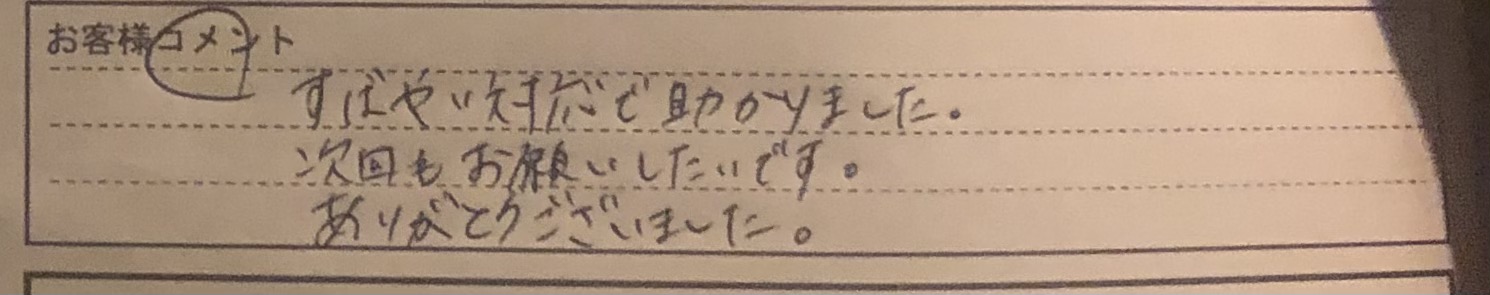 お客様コメント
すばやい対応で助かりました。
次回もお願いしたいです。
ありがとうございました。